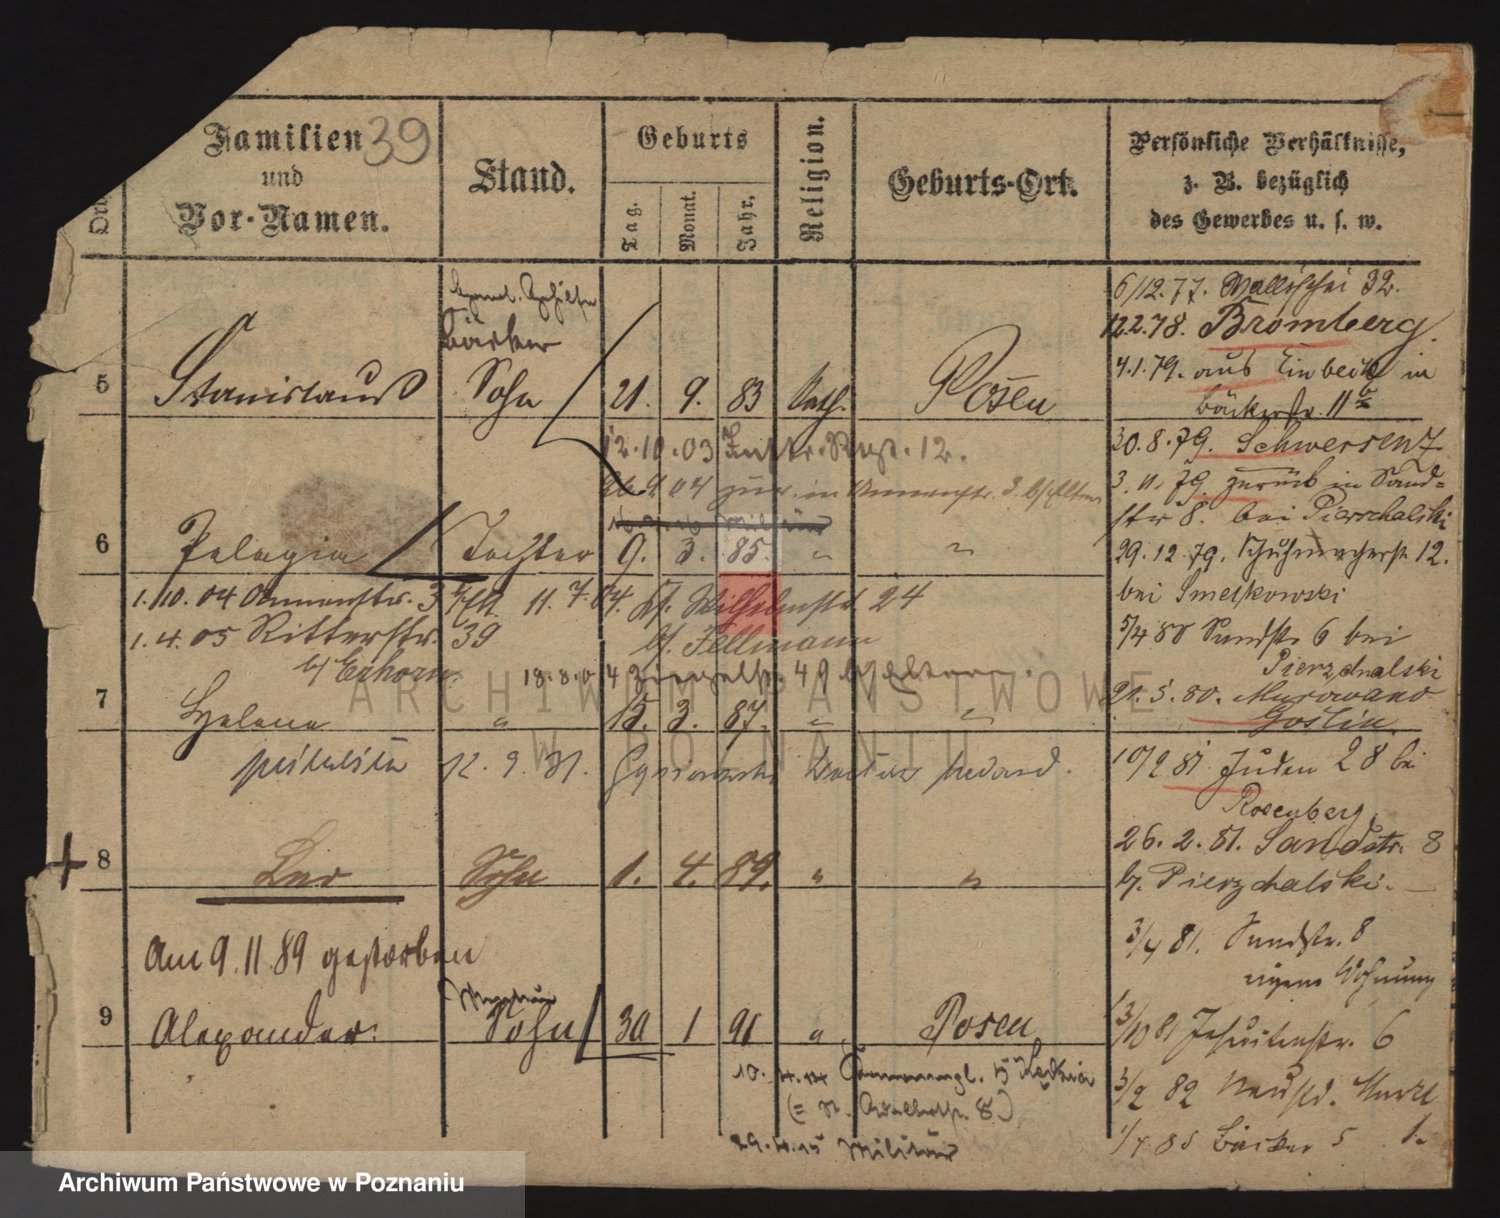 Familien
und
Vor-Namen.
39
Stand.
Geburts
Tag.
Monat.
Jahr.
Religion.
Geburts-Ort.
Persönliche Verhältnisse,
z. B. bezüglich
des Gewerbes u. s. w.
5
Stanislaus
Bäcker
Sohn
21. 9. 83 Kath. Posen
12.10.03
04 zur. in
6
Pelagia
Tochter
9. 3. 85. " "
1.10.04 Annenstr. 3 11.7.04. Wilhelmstr. 24
1.4.05 Ritterstr. 39
b/ Tellmann
18.8.04
7
Helene
" 15. 3. 87. " "
12. 9. 31.
8
Leo
Sohn
1. 4. 89. " "
Am 9.11.89 gestorben
9
Alexander.
Sohn
30 1 91 " Posen
10.
29.4.15 Militär
6/12.77. Wallischei 32.
12.2.78. Bromberg.
4.1.79. aus in
Bäckerstr. 11
30.8.79. Schwersenz
3.11.79 zurück in Sand=
str 8. bei Pierzchalski
29.12.79. Schuhmacherstr 12.
bei Smelkowski
5/4 80 Sandstr 6 bei
Pierzchalski
21.5.80. Murowano
Goslin.
10/2 81 Juden 28 bei
Rosenberg
26.2.81. Sandstr. 8
b. Pierzchalski.
3/4 81. Sandstr. 8
eigene Wohnung
3/10 81 Jesuitenstr. 6
3/2 82 Neust. Markt
1/4 85 Bäcker 5
ARCHIWUM PAŃSTWOWE
W POZNANIU
Archiwum Państwowe w Poznaniu